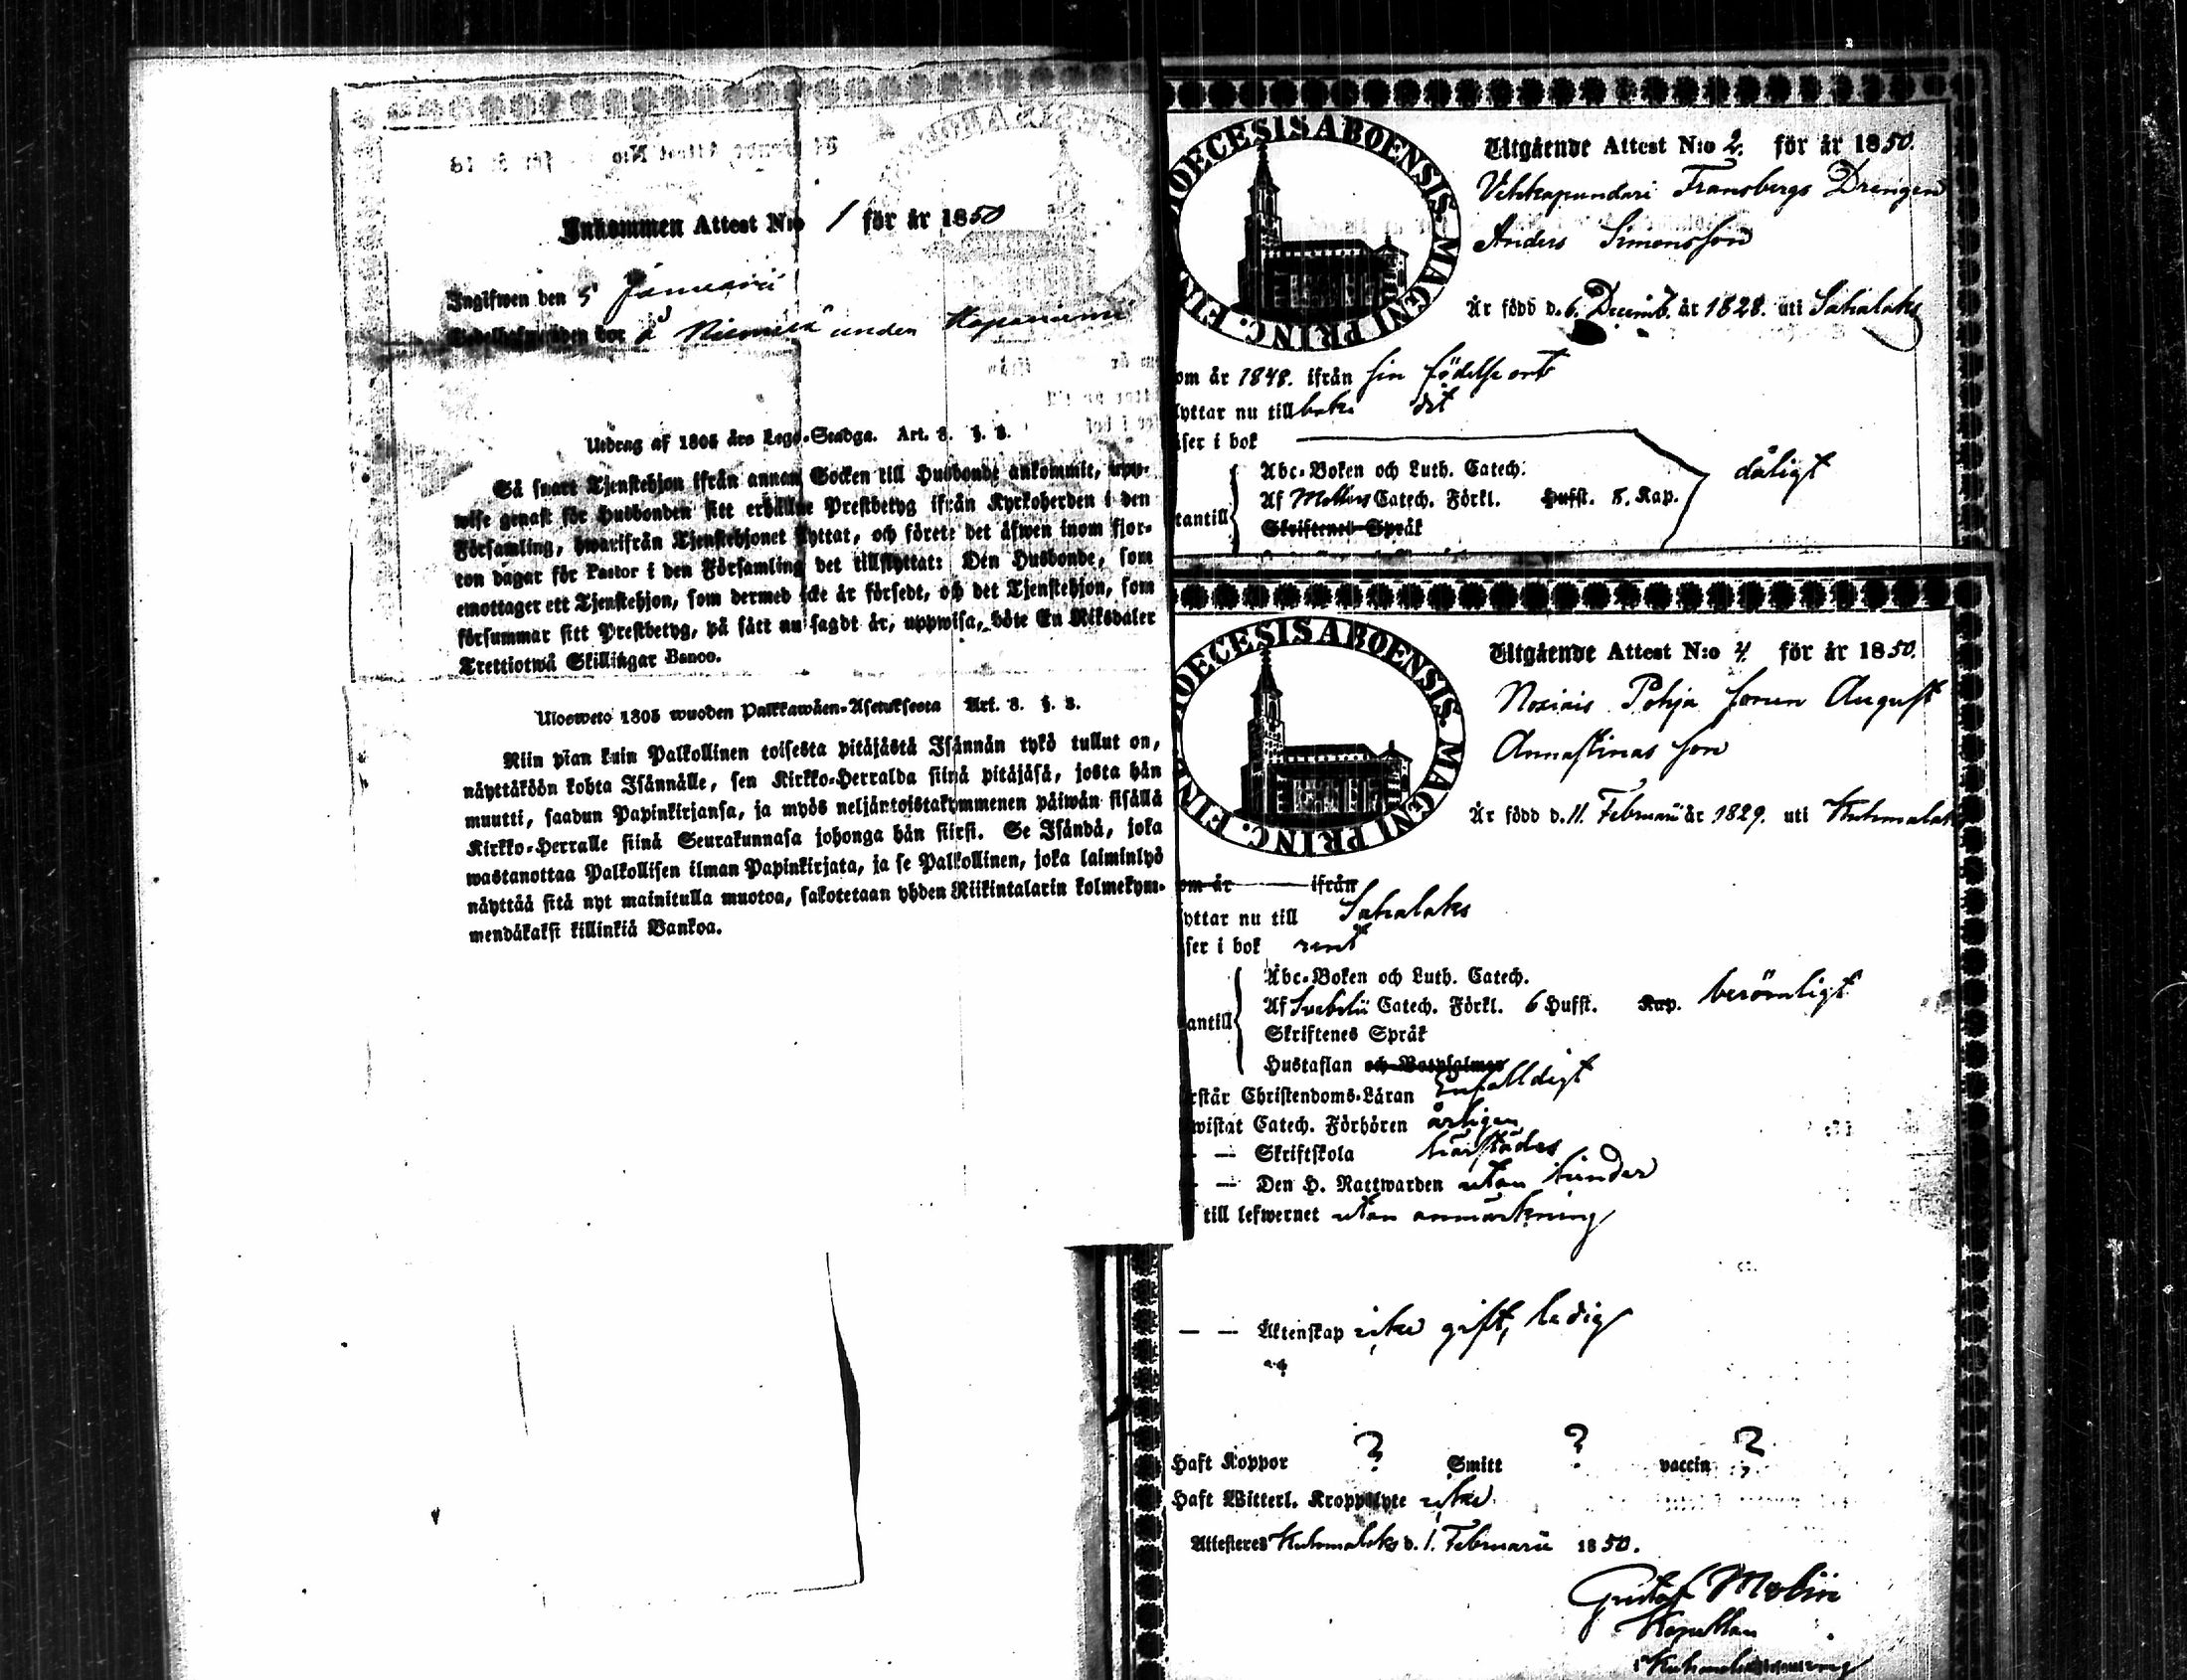 Inkommen Attest N:o 1 för år 1850
Ingifwen den 5 Januari
bor å under
Utdrag af 1805 års Lego-Stadga. Art. 8. §. 3.
Så snart Tjenstehjon ifrån annan Socken till Husbonde ankommit, upp-
wise genast för Husbonden sitt erhållne Prestbetyg ifrån Kyrkoherden i den
Församling, hwarifrån Tjenstehjonet flyttat, och förete det äfwen inom fjor-
ton dagar för Pastor i den Församling det tillflyttat: Den Husbonde, som
emottager ett Tjenstehjon, som dermed icke är försedt, och det Tjenstehjon, som
försummar sitt Prestbetyg, på sätt nu sagdt är, uppwisa, böte En Riksdaler
Trettiotwå Skillingar Banco.
Ulosweto 1805 wuoden Palkkawäen-Asetuksesta Art. 8. §. 3.
Niin pian kuin Palkollinen toisesta pitäjästä Isännän tykö tullut on,
näyttäköön kohta Isännälle, sen Kirkko-Herralda siinä pitäjäsä, josta hän
muutti, saadun Papinkirjansa, ja myös neljäntoistakymmenen päiwän sisällä
Kirkko-Herralle siinä Seurakunnasa johonga hän siirsi. Se Isändä, joka
wastanottaa Palkollisen ilman Papinkirjata, ja se Palkollinen, joka laiminlyö
näyttää sitä nyt mainitulla muotoa, sakotetaan yhden Riikintalarin kolmekym-
mendäkaksi killinkiä Bankoa.
DIOECESIS ABOENSIS MAGNI PRINC. FIN
Utgående Attest N:o 2. för år 1850.
Fransbergs Drengen
Anders Simonsson
Är född d. 6. Decemb. år 1828. uti Sahalaks
om år 1848. ifrån sin födelse ort
lyttar nu till baka dit
äser i bok
Abc-Boken och Luth. Catech.
Af Catech. Förkl. Hufst. 8. Kap. dåligt
tantill
Skriftenes Språk
DIOECESIS ABOENSIS MAGNI PRINC. FIN
Utgående Attest N:o 4. för år 1850.
Pohja sonen August
Annastinas son
Är född d. 11. Februarii år 1829. uti Kuhmalaks
om år ifrån
yttar nu till Sahalaks
ser i bok rent
Abc-Boken och Luth. Catech.
Af Svebelii Catech. Förkl. 6 Hufst. Kap. berömligt
antill
Skriftenes Språk
Hustaflan och Botpsalmer
rstår Christendoms-Läran Enfalldigt
wistat Catech. Förhören årligen
— — Skriftskola härstädes
— — Den H. Nattwarden utan hinder
till lefwernet utan anmärkning
— — Äktenskap icke gift, ledig
Haft Koppor ? Smitt ? vaccin ?
Haft Witterl. Kroppslyte icke
Attesteres Kuhmalaks d. 1. Februarii 1850.
Gustaf Molin
Kapellan